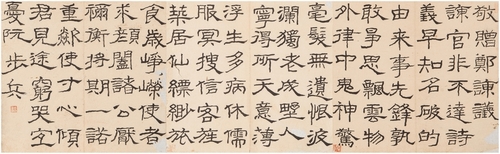 敬贈鄭諫議
諫官非不達詩
義早知名破的
由來事先鋒孰
敢爭思飄雲物
外律中鬼神驚
毫髮無遺憾波
瀾獨老成埜人
寧得所天意薄
浮生多病休儒
服冥搜信客旌
築居仙縹緲旅
食歲崢嶸使者
求顏闔諸公厭
禰衡將期一諾
重欻使寸心傾
君見途窮哭宜
憂阮步兵